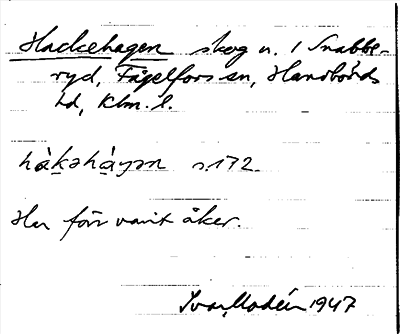 Hackehagen skog n. i Snabbe-
ryd, Fågelfors sn, Handbörds
hd, Klm. l.
hàkəhàγən s. 172.
Har förr varit åker.
Ivar Modéer 1947